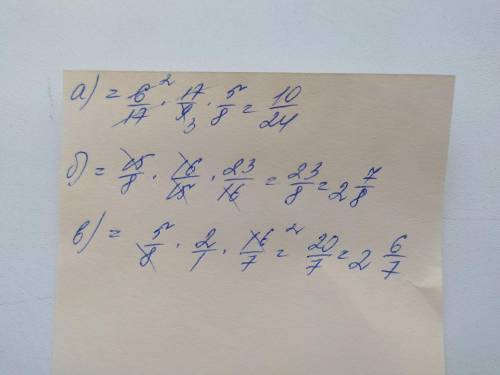 а) = 6/17 ² · 17/9 ₃ · 5/8 = 10/24
б) = 15/8 · 16/15 · 23/16 = 23/8 = 2 7/8
в) = 5/8 · 2/1 · 16/7 ² = 20/7 = 2 6/7